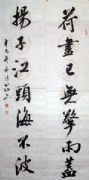 荷盡已無擎雨蓋
揚子江頭海不波